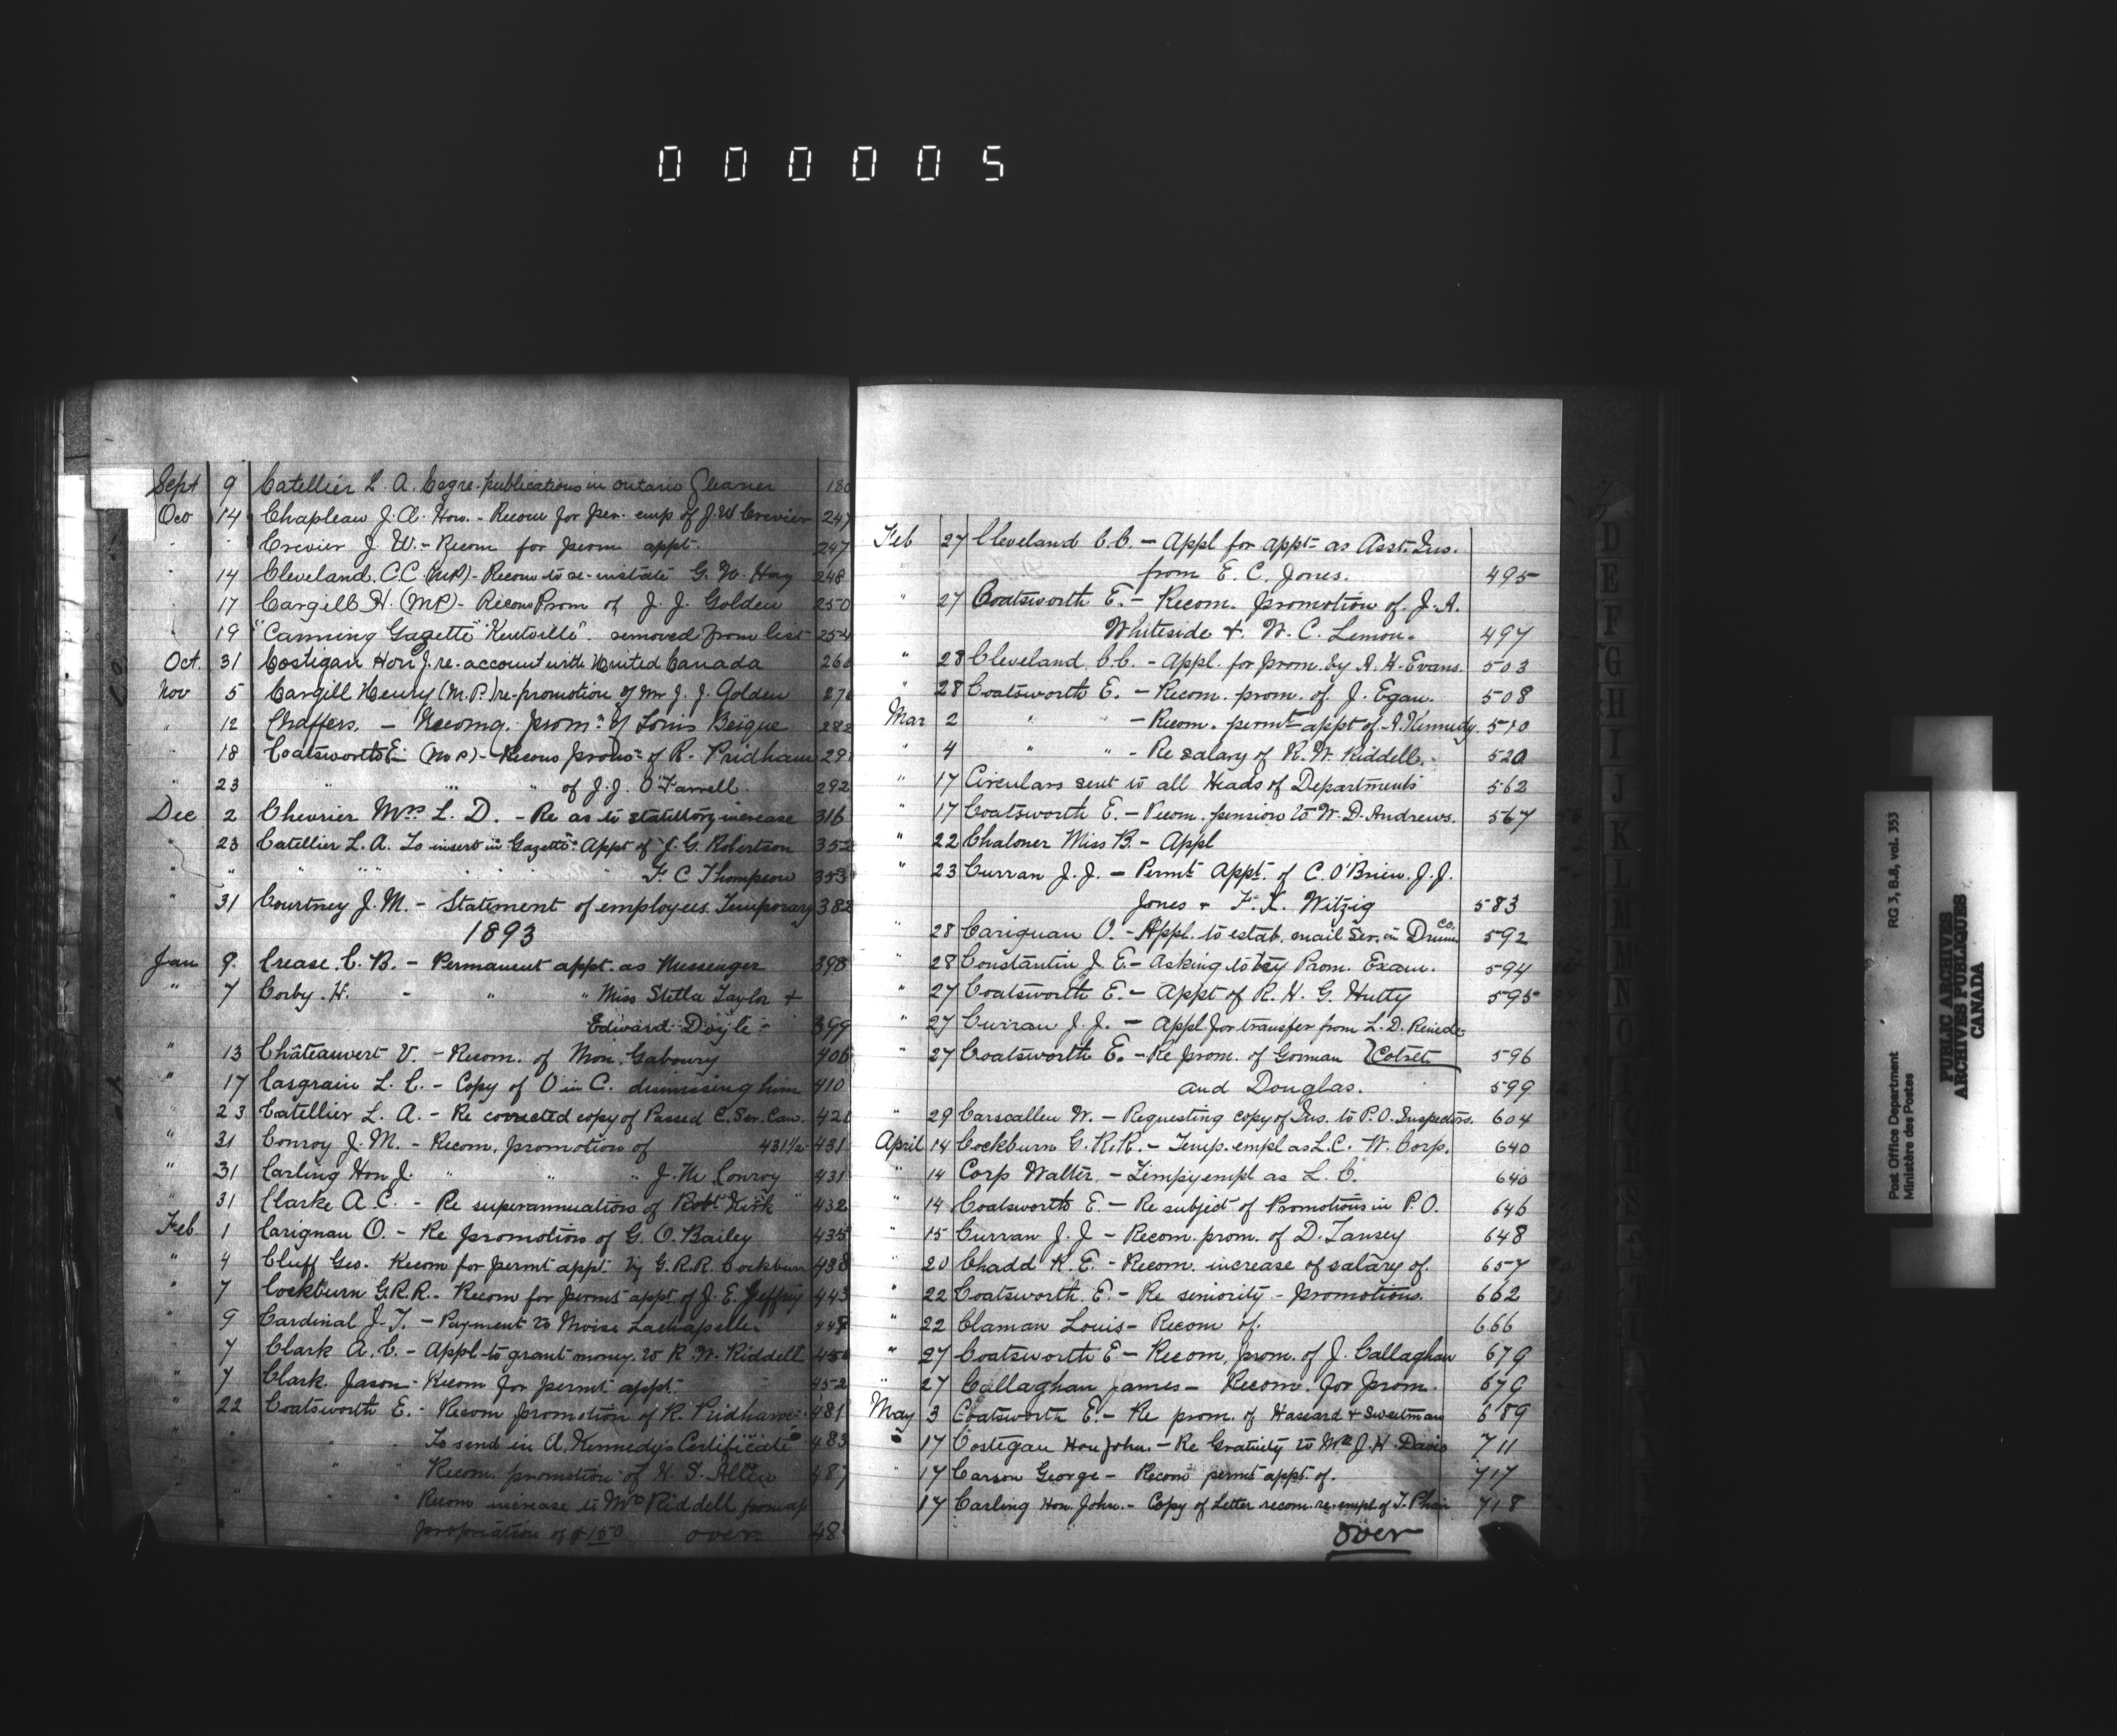 0 0 0 0 0 5
Sept 9 Catellier L. A. Cagre. publications in Ontario Gleaner 180
Oco 14 Chapleau J. A. Hon. - Recom for per. emp of J. W Crevier 247
" " Crevier J. W. - Recom for perm appt. 247
" 14 Cleveland. C. C (MP) - Recom to re-instate G. W. Hay 248
" 17 Cargill H. (MP) - Recom Prom of J. J. Golden 250
" 19 "Canning Gazette" Kentville". removed from list 254
Oct. 31 Costigan Hon J. re-account with United Canada 266
Nov 5 Cargill Henry (M.P.) re-promotion of Mr J. J. Golden 276
" 12 Chaffers. - Recomg. prom: of Louis Beique 282
" 18 Coatsworth E. (MP) - Recom prom: of R. Pridham 29
" 23 " " " of J. J. O'Farrell. 292
Dec 2 Chevrier Mrs L. D. - Re as to statutory increase 316
" 23 Catellier L. A. To insert in "Gazette" Appt of J. G. Robertson 352
" " " " " F. C Thompson 353
" 31 Courtney J. M. - Statement of employees. Temporary 382
1893
Jan 9. Crease. C. B. - Permanent appt. as Messenger 398
" 7 Corby. H. - " " Miss Stella Taylor +
Edward Doyle - 399
" 13 Châteauvert V. - Recom. of Mon. Gaboury 406
" 17 Casgrain L. C. - Copy of O in C. dismissing him 410
" 23 Catellier L. A. - Re corrected copy of Passed C. Ser. Can. 421
" 31 Conroy J. M. - Recom. promotion of 431½ - 431
" 31 Carling Hon J. " " " J. M Conroy 431
" 31 Clarke A. C. - Re superannuation of Robt. Kirk 432
Feb. 1 Carignan O. - Re promotion of G. O. Bailey 435
" 4 Cluff Geo. Recom for permt appt. by G. R. R. Cockburn 438
" 7 Cockburn G. R. R. - Recom for permt appt. of J. E. Jeffrey 443
" 9 Cardinal J. T. - Payment to Moise Lachapelle. 448
" 7 Clark A. C. - Appl. to grant money to R. W. Riddell 45
" 7 Clark. Jason - Recom for permt appt. 452
" 22 Coatsworth E. - Recom promotion of R. Pridham - 481
" " " " To send in A. Kennedy's Certificate 483
" " " " Recom. promotion of H. S. Allen 487
" " " Recom increase to Mr Riddell from ap
propriation of $150 over 48
Feb 27 Cleveland C. C. - Appl for appt as Asst. Ins.
from E. C. Jones. 495
" 27 Coatsworth E. - Recom. promotion of. J. A.
Whiteside +. W. C. Lemon. 497
" 28 Cleveland. C. C. - Appl. for prom. by A. H. Evans. 503
" 28 Coatsworth E. - Recom. prom. of. J. Egan. 508
Mar 2 " " - Recom. permt appt of. A. Kennedy. 510
" 4 " " - Re salary of R. W. Riddell. 520
" 17 Circulars sent to all Heads of Departments 562
" 17 Coatsworth E. - Recom. pension to W. D. Andrews. 567
" 22 Chaloner Miss B. - Appl
" 23 Curran J. J. - Permt Appt. of C. O'Brien. J. J.
Jones + F. X. Witzig 583
" 28 Carignan O. - Appl. to estab. mail Ser. in Drum. Co. 592
" 28 Constantin J. E - Asking to try Prom. Exam. 594
" 27 Coatsworth E. - Appt of R. H. G. Hutty 595
" 27 Curran J. J. - Appl for transfer from L. D.
" 27 Coatsworth E. - Re prom. of Gorman Colret 596
and Douglas. 599
" 29 Carscallen W. - Requesting copy of Ins. to P. O. Inspectors. 604
April 14 Cockburn G. R. R. - Temp. empl as L. C. W. Corp. 640
" 14 Corp Walter. - Tempy empl as L. C. 640
" 14 Coatsworth E - Re subject of Promotions in P. O. 646
" 15 Curran J. J - Recom. prom. of D. Tansey 648
" 20 Chadd K. E. - Recom. increase of salary of. 657
" 22 Coatsworth. E. - Re seniority - promotions. 662
" 22 Claman Louis - Recom of. 666
" 27 Coatsworth E - Recom. prom. of J. Callaghan 679
" 27 Callaghan James - Recom. for prom. 679
May 3 Coatsworth E. - Re prom. of Hassard + Sweetman 689
" 17 Costegan Hon John. - Re Gratuity to Mrs J. H. Davis 711
" 17 Carson George - Recom permt appt. of. 717
17 Carling Hon. John. - Copy of Letter recom. re-empl. of T. Phair 718
over
D
E
F
G
H
I
J
K
L
M
N
O
Post Office Department RG 3, B.8, vol. 353
Ministère des Postes
PUBLIC ARCHIVES
ARCHIVES PUBLIQUES
CANADA